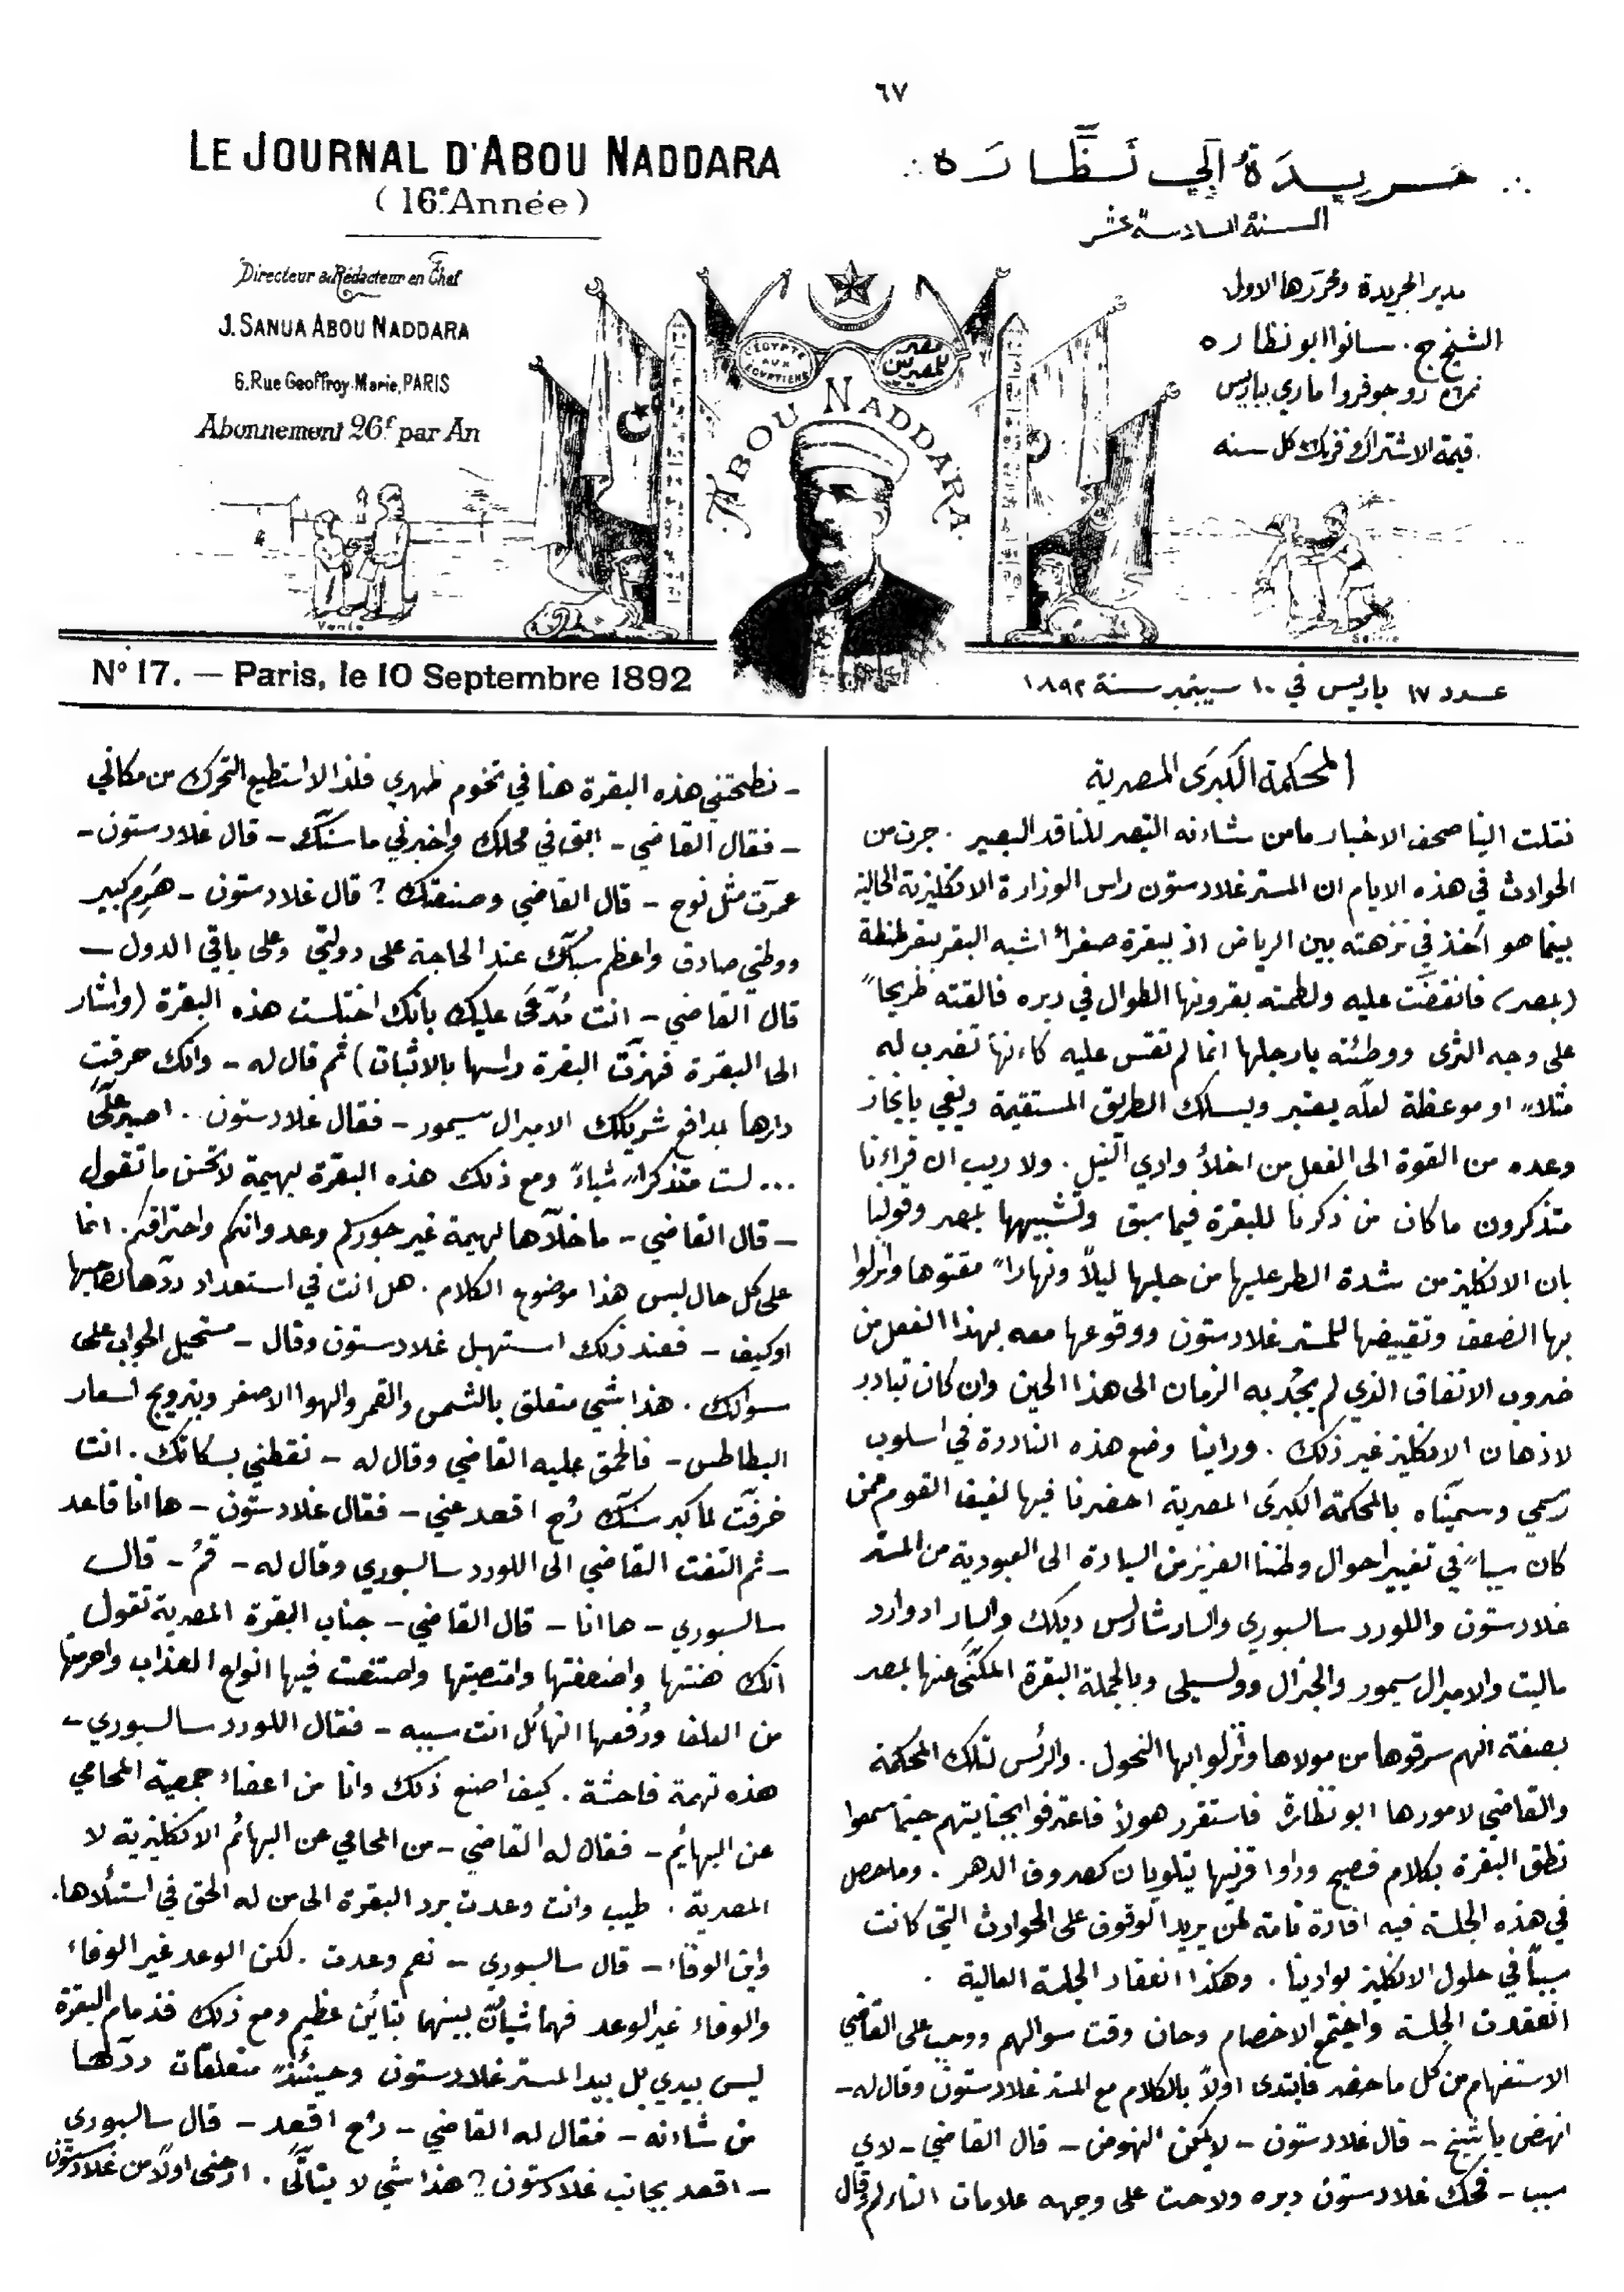 ٦٧
LE JOURNAL D'ABOU NADDARA
( 16e. Année )
جريدة ابي نظّاره
السنة السادسة عشر
Directeur & Rédacteur en Chef
J. SANUA ABOU NADDARA
6. Rue Geoffroy-Marie, PARIS
Abonnement 26f par An
مدير الجريدة ومحررها الاول
الشيخ ج. سانوا ابو نظاره
نمرة ٦ رو جوفروا ماري بباريس
قيمة الاشتراك فرنك كل سنه
L'ÉGYPTE AUX ÉGYPTIENS
مصر للمصريين
ABOU NADDARA
Vente
N° 17. — Paris, le 10 Septembre 1892
عدد ١٧ باريس في ١٠ سبتمبر سنة ١٨٩٢
المحكمة الكبرى المصرية
نقلت الينا صحف الاخبار ما من شاءنه التبصر للناقد البصير . جرت من
الحوادث في هذه الايام ان المستر غلادستون راس الوزارة الانكليزية الحالية
بينما هو اخذ في نزهته بين الرياض اذ ببقرة صفراء اشبه البقر ببقر لحظة
(بمصر) فانقضّت عليه ولطمته بقرونها الطوال في دبره فالقته طريحا"
على وجه الثرى ووطئته بارجلها انما لم تقس عليه كاءنها تضرب له
مثلا" او موعظة لعلّه يعتبر ويسلك الطريق المستقيمة ويفي بايجاز
وعده من القوة الى الفعل من اخلاء وادي النيل . ولا ريب ان قراءنا
متذكرون ما كان من ذكرنا للبقرة فيما سبق وتشبيهها بمصر وقولنا
بان الانكليز من شدة الطر عليها من حلبها ليلاً ونهارا" مقتوها وانزلوا
بها الضعف وتقييضها للمستر غلادستون ووقوعها معه بهذا الفعل من
ضروب الاتفاق الذي لم يجد به الزمان الى هذا الحين وان كان تبادر
لاذهان الانكليز غير ذلك . وراينا وضع هذه النادرة في اسلوب
رسمي وسميناه بالمحكمة الكبرى المصرية احضرنا فيها لفيف القوم ممن
كان سببا" في تغيير احوال وطننا العزيز من السيادة الى العبودية من المستر
غلادستون واللورد سالسبوري والسار شارلس ديلك والسار ادوارد
ماليت والاميرال سيمور والجنرال وولسيلي وبالجملة البقرة المكنّى عنها بمصر
بصفة انهم سرقوها من مولاها وانزلوا بها النحول . والرئس لتلك المحكمة
والقاضي لامورها ابو نظارة فاستقرر هولاء فاعترفوا بجنايتهم حينما سمعوا
نطق البقرة بكلام فصيح وراوا قرنيها يتلويان كصروف الدهر . وما حصل
في هذه الجلسة فيه افادة تامة لمن يريد الوقوف على الحوادث التي كانت
سبباً في حلول الانكليز بوادينا . وهكذا انعقاد الجلسة العالية .
انعقدت الجلسة واجتمع الاخصام وحان وقت سوالهم ووجب على القاضي
الاستفهام من كل ما حضر فابتدى اولاً بالكلام مع المستر غلادستون وقال له -
انهض يا شيخ - قال غلادستون - لا يمكن النهوض - قال القاضي - لاي
سبب - فحك غلادستون دبره ولاحت على وجهه علامات التاءلم وقال
- نطحتني هذه البقرة هنا في تخوم ظهري فلذا لا استطيع التحرك من مكاني
- فقال القاضي - ابق في محلك واخبرني ما سنّك - قال غلادستون -
عمرت مثل نوح - قال القاضي وصنعتك ? قال غلادستون - هَرِم كبير
ووطني صادق واعظم سبّاك عند الحاجة على دولتي وعلى باقي الدول -
قال القاضي - انت مُدّعَى عليك بانك اختلست هذه البقرة (واشار
الى البقرة فهزت البقرة راسها بالاثبات) ثم قال له - وانك حرقت
دارها بمدافع شريكك الاميرال سيمور - فقال غلادستون .. اصبر عليّ
... لست متذكرا" شياءً ومع ذلك هذه البقرة بهيمة لا تحسن ما تقول
- قال القاضي - ما خلاّها بهيمة غير جوركم وعدوانكم واحتراقكم . انما
على كل حال ليس هذا موضوع الكلام . هل انت في استعداد ردّها لصاحبها
او كيف - فعند ذلك استهبل غلادستون وقال - مستحيل الجواب على
سوالك . هذا شي متعلق بالشمس والقمر والهوا الاصفر وبترويج اسعار
البطاطس - فاحمق عليه القاضي وقال له - نقطني بسكاتك . انت
خرفت لما كبر سنّك رُح اقعد عني - فقال غلادستون - ها انا قاعد
- ثم التفت القاضي الى اللورد سالسبوري وقال له - قمُ - قال
سالسبوري - ها انا - قال القاضي - جناب البقرة المصرية تقول
انك هنتها واضعفتها وامتصيتها واصتنعت فيها انواع العذاب واحرمتها
من العلف وضعفها الهائل انت سببه - فقال اللورد سالسبوري -
هذه تهمة فاحشة . كيف اصنع ذلك وانا من اعضاء جمعية المحامي
عن البهايم - فقال له القاضي - من المحامي عن البهائم الانكليزية لا
المصرية . طيب وانت وعدت برد البقرة الى من له الحق في استلاها .
واين الوفاء - قال سالسبوري - نعم وعدت . لكن الوعد غير الوفاء
والوفاء غير الوعد فهما شياءن بينهما تباين عظيم ومع ذلك فزمام البقرة
ليس بيدي بل بيد المستر غلادستون وحينئذ متعلقات ردّها
من شاءنه - فقال له القاضي - رُح اقعد - قال سالسبوري
- اقعد بجانب غلادستون ? هذا شي لا يتاتّى . ارحني اولاً من غلادستون